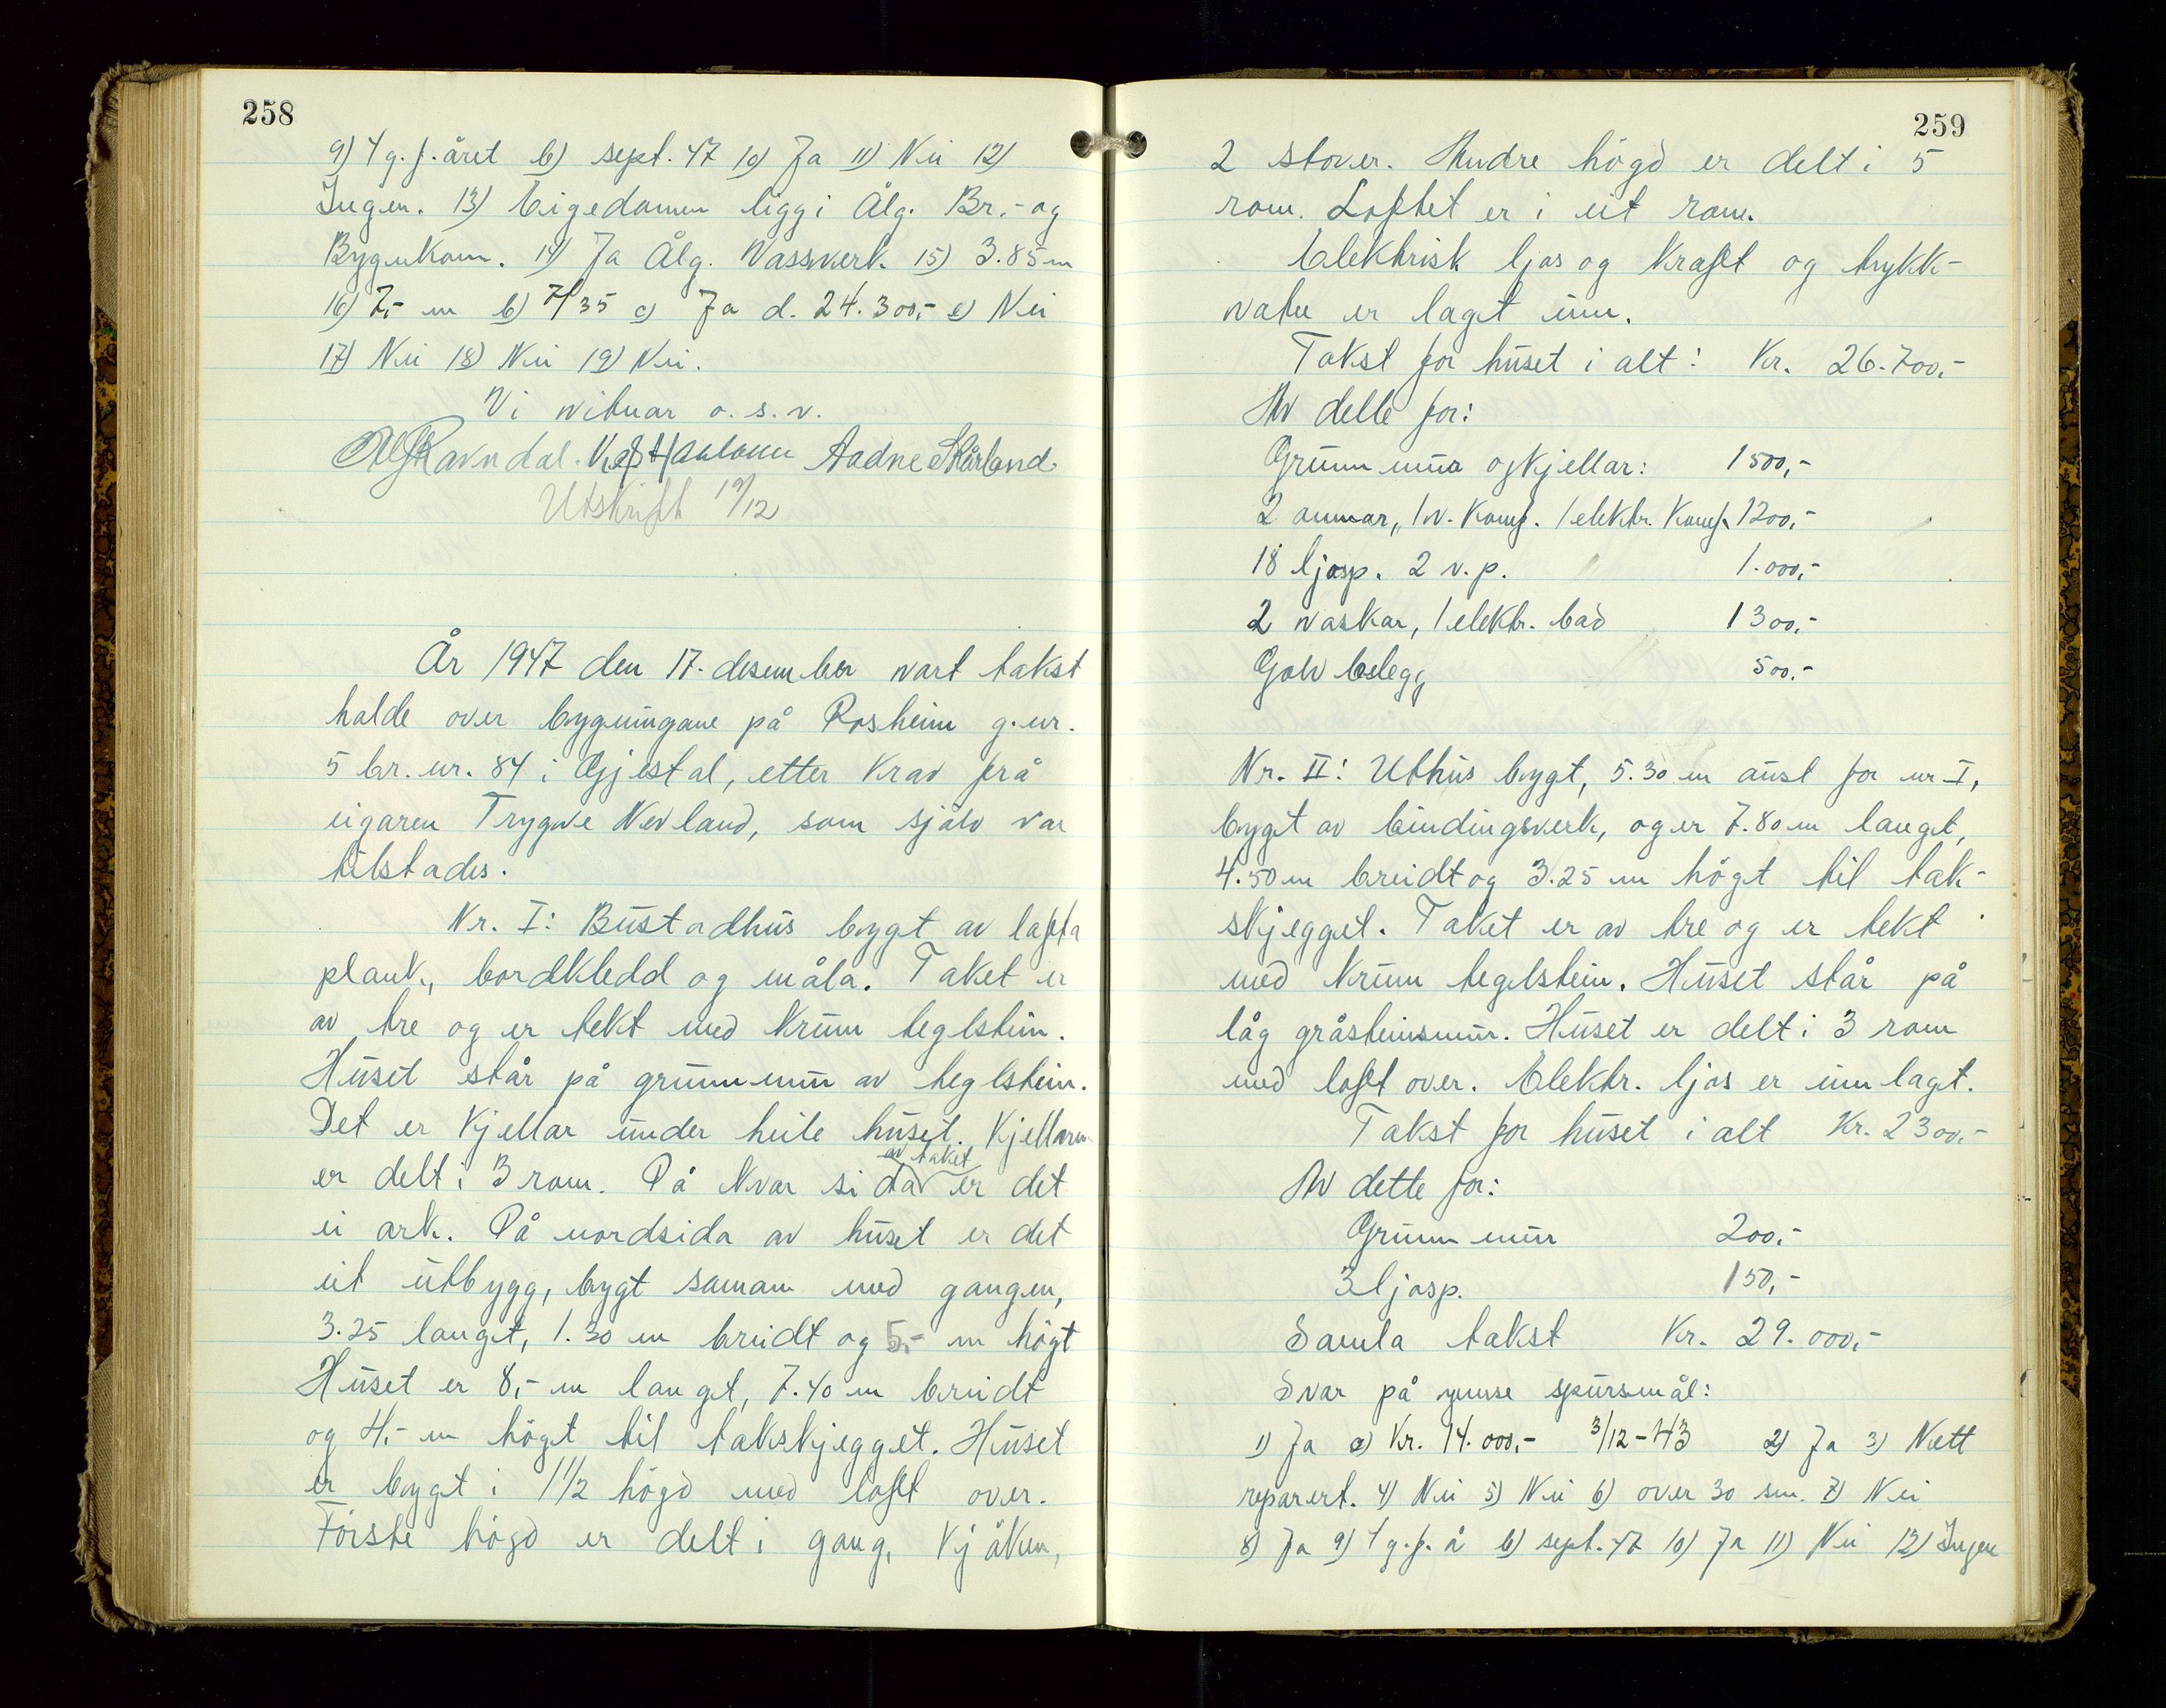 258
9) 4 g. f. året b) sept. 47 10) Ja 11) Nei 12)
Ingen. 13) Eigedomen ligg i Ålg. Br.- og
Bygnkom. 14) Ja Ålg. Vassverk. 15) 3.85 m
16) 7,- m b) 7/35 c) Ja d. 24.300,- e) Nei
17) Nei 18) Nei 19) Nei.
Vi vitnar o. s. v.
Alf Ravndal. Aadne Skårland
Utskrift 19/12
År 1947 den 17. desember vart takst
halde over bygningane på Rosheim g.nr.
5 br. nr. 84 i Gjestal, etter krav frå
eigaren Trygve Nevland, som sjølv var
tilstades.
Nr. I: Bustadhus bygt av lafta
plank, bordkledd og måla. Taket er
av tre og er tekt med krum teglstein.
Huset står på grunnmur av teglstein.
Det er kjellar under heile huset. Kjellaren
er delt i 3 rom. På kvar sida av taket er det
ei ark. På nordsida av huset er det
eit utbygg, bygt saman med gangen,
3.25 langt, 1.30 m breidt og 5,- m högt
Huset er 8,- m langt, 7.40 m breidt
og 4,- m högt til takskjegget. Huset
er bygt i 1 1/2 högd med loft over.
Förste högd er delt i gang, kjöken,
259
2 stover. Andre högd er delt i 5
rom. Loftet er i eit rom.
Elektrisk ljos og kraft og trykk-
vatn er lagt inn.
Takst for huset i alt: Kr. 26.700,-
Av dette for:
Grunnmur og kjellar: 1500,-
2 omnar, 1 v. komf. 1 elektr. komf. 1200,-
18 ljosp. 2 v. p. 1.000,-
2 vaskar, 1 elektr. bad 1300,-
Golvbelegg 500,-
Nr. II: Uthus bygt, 5.30 m aust for nr I,
bygt av bindingsverk, og er 7.80 m langt,
4.50 m breidt og 3.25 m högt til tak-
skjegget. Taket er av tre og er tekt
med krum teglstein. Huset står på
låg gråsteinsmur. Huset er delt i 3 rom
med loft over. Elektr. ljos er innlagt.
Takst for huset i alt Kr. 2300,-
Av dette for:
Grunnmur 200,-
3 ljosp. 150,-
Samla takst Kr. 29.000,-
Svar på ymse spursmål:
1) Ja a) Kr. 14.000,- 3/12-43 2) Ja 3) Nett
reparert. 4) Nei 5) Nei 6) over 30 sm. 7) Nei
8) Ja 9) 4 g. f. å b) sept. 47 10) Ja 11) Nei 12) Ingen